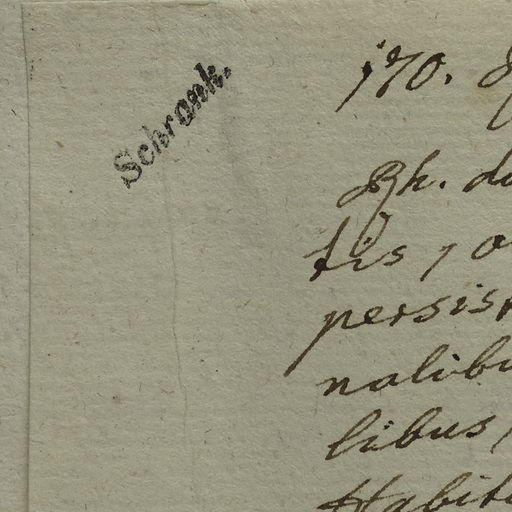 Schrank.
170.
tis, o
persis
nalibu
libus,
Habit